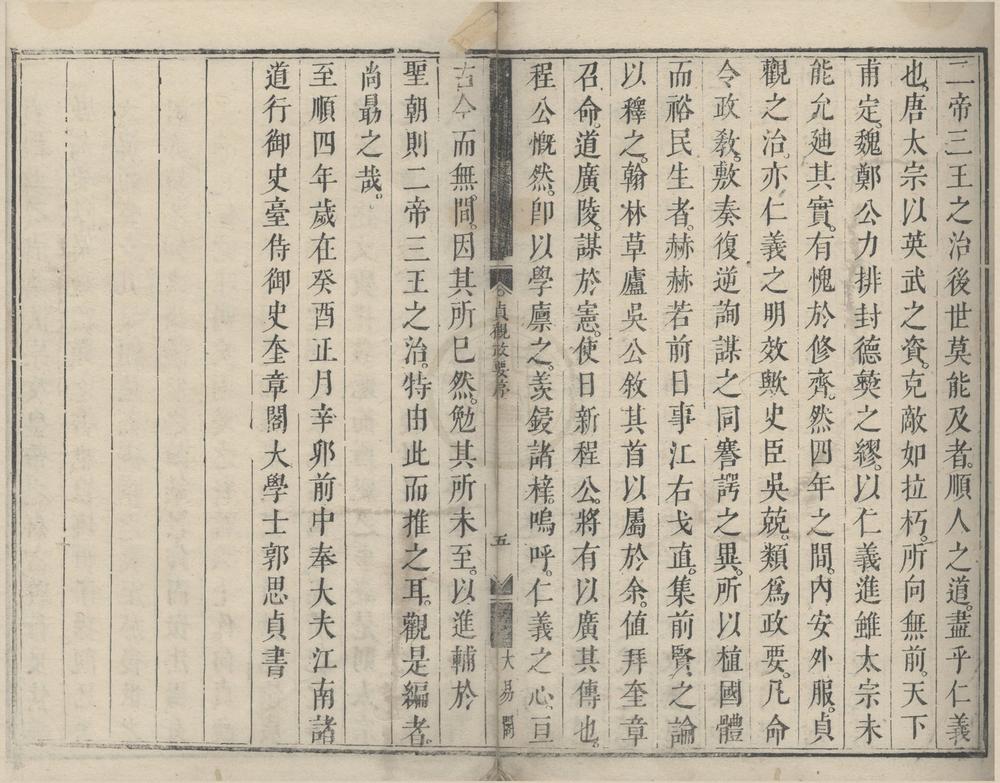 二帝三王之治後世莫能及者。順人之道。盡乎仁義
也。唐太宗以英武之資。克敵如拉朽。所向無前。天下
甫定。魏鄭公力排封德彛之繆。以仁義進。雖太宗未
能允廸其實。有愧於修齊。然四年之間。內安外服。貞
觀之治。亦仁義之明效歟。史臣吳兢。類爲政要。凡命
令政敎。敷奏復逆。詢謀之同。謇諤之異。所以植國體
而裕民生者。赫赫若前日事。江右戈直。集前賢之論
以釋之。翰林草廬吳公敘其首。以屬於余。値拜奎章
召命。道廣陵。謀於憲。使日新程公。將有以廣其傳也。
程公慨然。卽以學廪之。羡鋟諸梓。嗚呼。仁義之心。亘
貞觀政要序
五
大易閣
古今而無間。因其所已然。勉其所未至。以進輔於
聖朝則二帝三王之治。特由此而推之耳。觀是編者。
尚勗之哉。
至順四年歲在癸酉正月辛卯前中奉大夫江南諸
道行御史臺侍御史奎章閣大學士郭思貞書